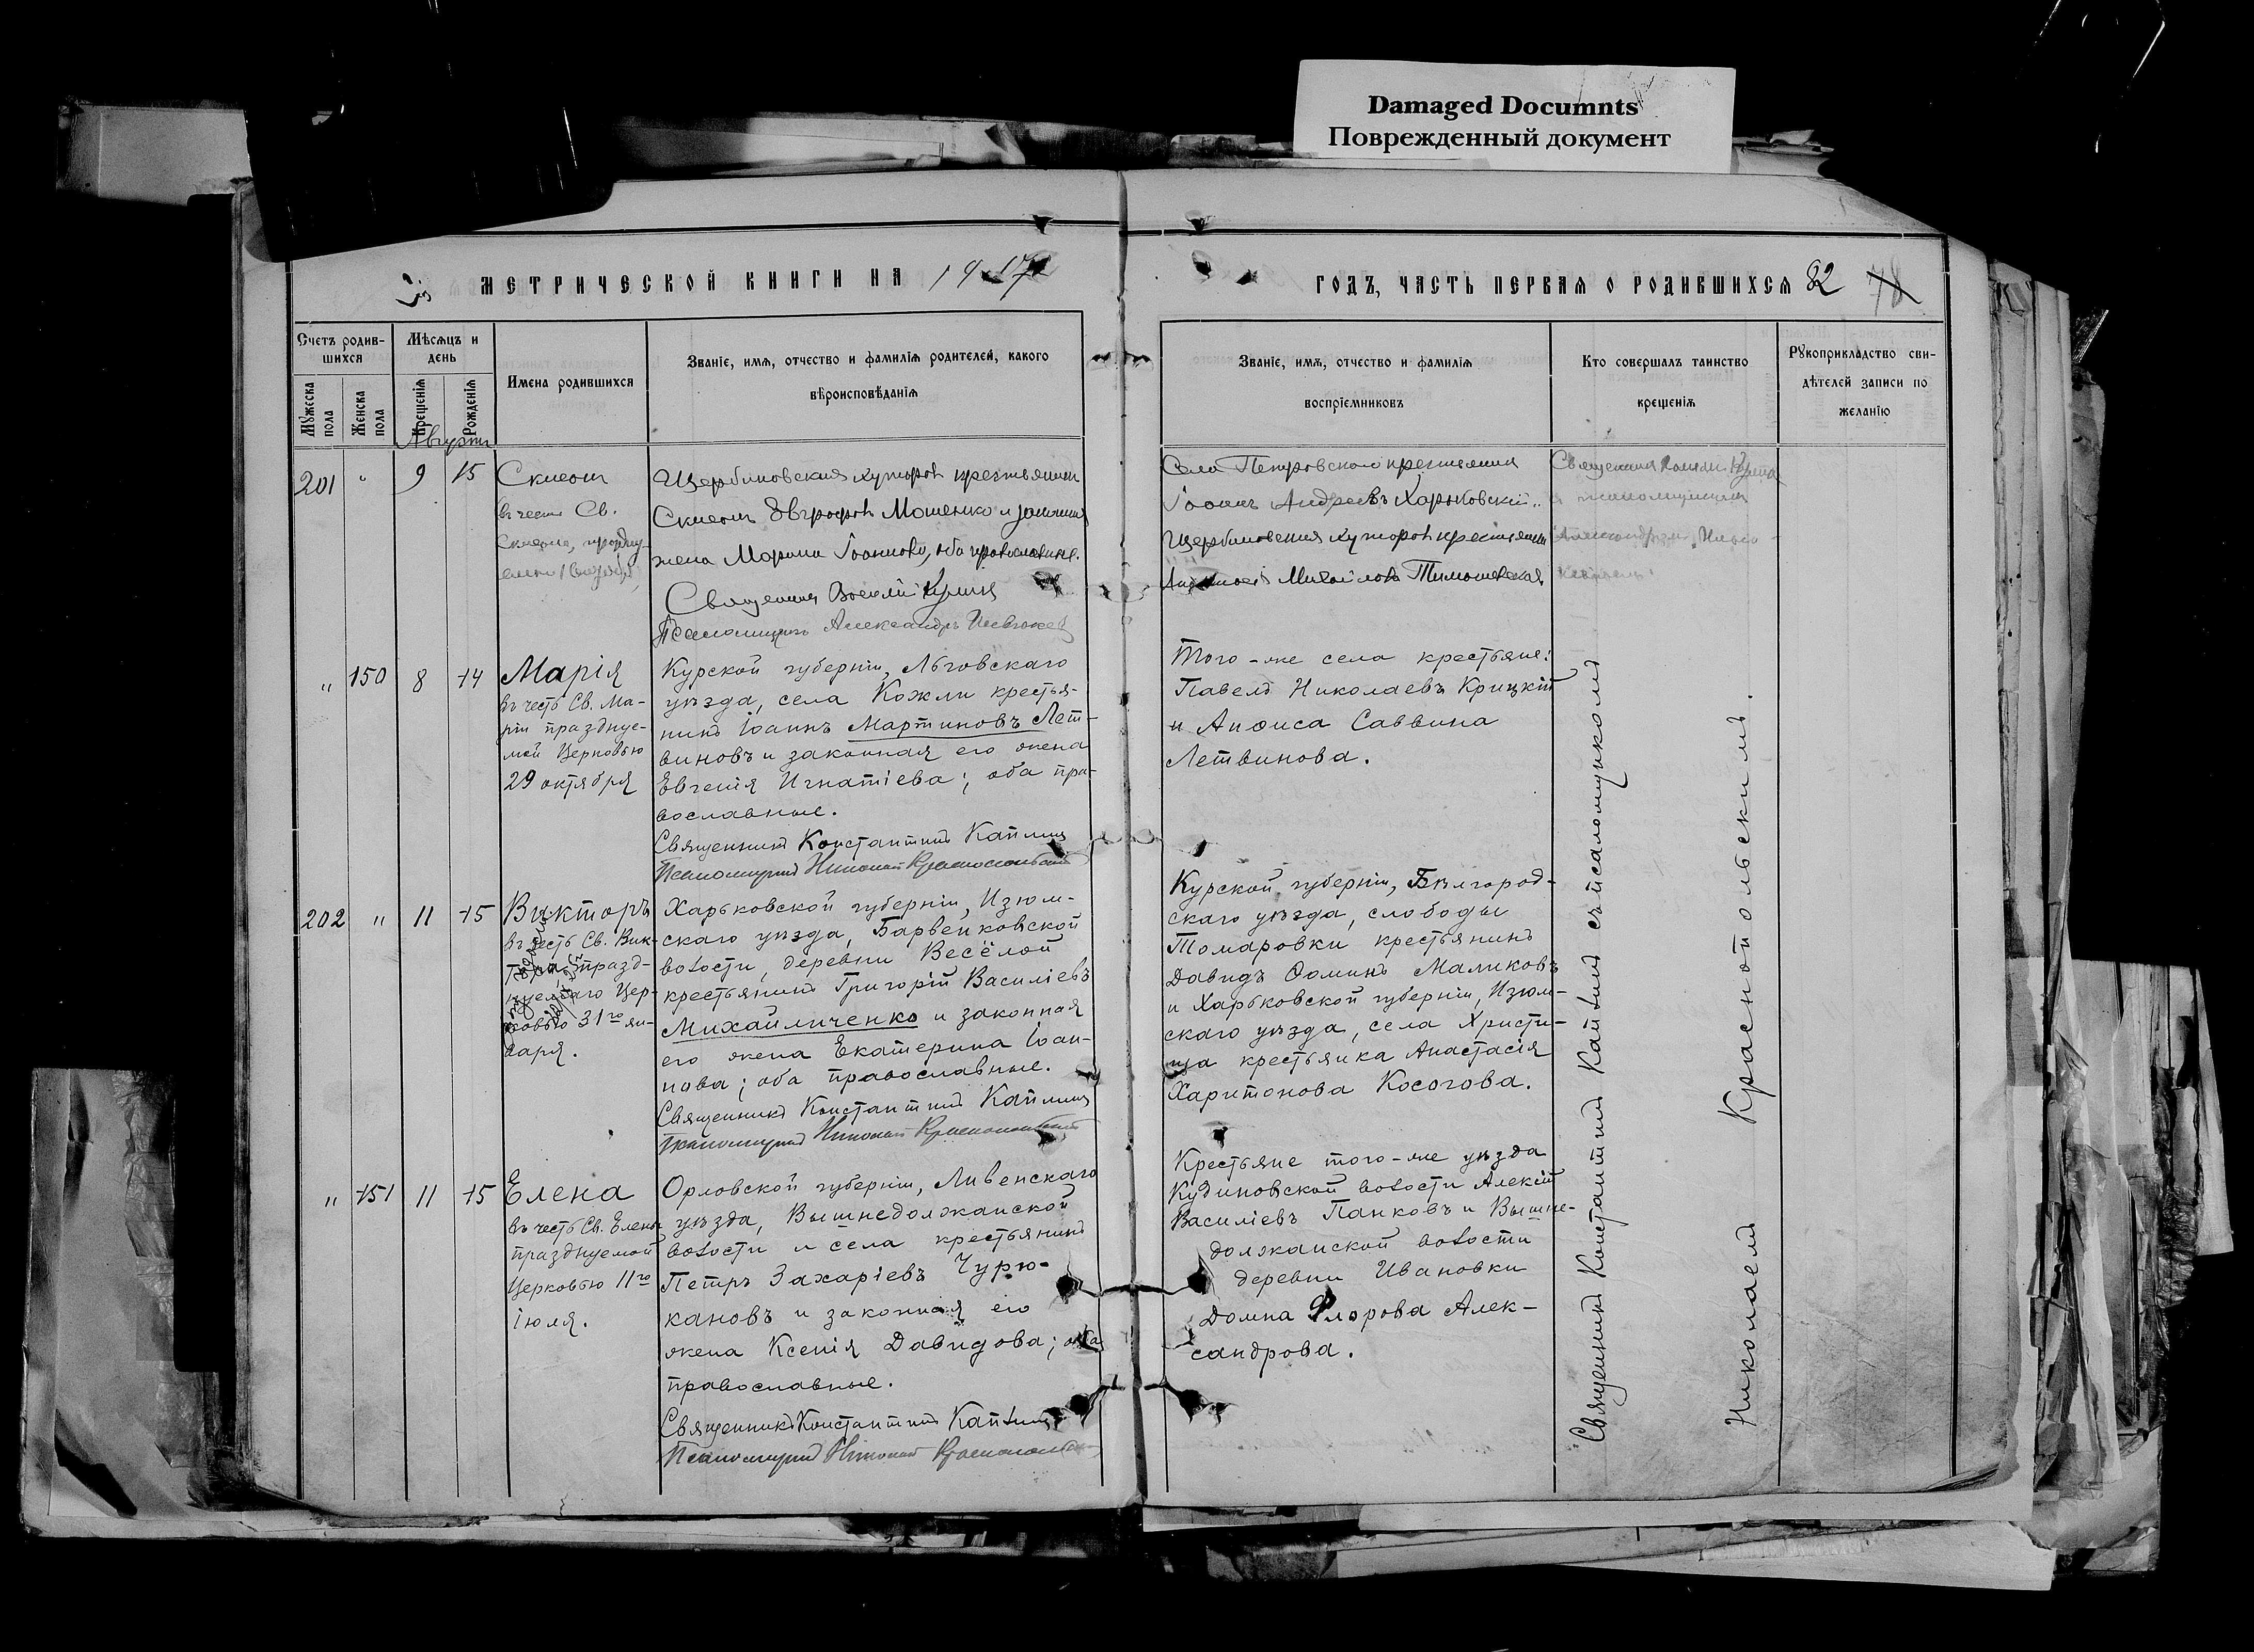 Damaged Documnts
Поврежденный документ
МЕТРИЧЕСКОЙ КНИГИ НА 1917
ГОДЪ, ЧАСТЬ ПЕРВАЯ О РОДИВШИХСЯ 82 78
Счетъ родив-
шихся
Мужеска пола
Женска пола
Мѣсяцъ и
день
Крещенія
Рожденія
Имена родившихся
Званіе, имя, отчество и фамилія родителей, какого
вѣроисповѣданія
Званіе, имя, отчество и фамилія
воспріемниковъ
Кто совершалъ таинство
крещенія
Рукоприкладство сви-
дѣтелей записи по
желанію
Августъ
201 " 9 15
въ честь Св.
Щербиновскихъ хуторовъ крестьянинъ
Мошенко и законная
жена Іоаннова, оба православные.
Священникъ
Псаломщикъ Александръ
Села Петровскаго крестьянинъ
Іоаннъ Андреевъ Харьковскій
Щербиновскихъ хуторовъ крестьянка
Михайлова Тимошевская
" 150 8 14
Марія
въ честь Св. Ма-
ріи празднуе-
мой Церковью
29 октября
Курской губерніи, Льговскаго
уѣзда, села Кожли крестья-
нинъ Іоаннъ Мартиновъ Лет-
виновъ и законная его жена
Евгенія Игнатіева; оба пра-
вославные.
Священникъ Константинъ Каплинъ
Псаломщикъ Николай Краснопольскій
Того-же села крестьяне:
Павелъ Николаевъ Крицкій
и Анѳиса Саввина
Летвинова.
202 " 11 15
Викторъ
въ честь Св. Вик-
празд-
нуемаго Цер-
ковью 31го ян-
варя.
Харьковской губерніи, Изюм-
скаго уѣзда, Барвенковской
волости, деревни Весёлой
крестьянинъ Григорій Василіевъ
Михайличенко и законная
его жена Екатерина Іоан-
нова; оба православные.
Священникъ Константинъ Каплинъ
Псаломщикъ Николай Краснопольскій
Курской губерніи, Бѣлгород-
скаго уѣзда, слободы
Томаровки крестьянинъ
Давидъ Ѳоминъ Маликовъ
и Харьковской губерніи, Изюм-
скаго уѣзда, села Христи-
ща крестьянка Анастасія
Харитонова Косогова.
" 151 11 15
Елена
въ честь Св. Елены
празднуемой
Церковью 11го
Іюля.
Орловской губерніи, Ливенскаго
уѣзда, Вышнедолжанской
волости и села крестьянинъ
Петръ Захаріевъ Чурю-
кановъ и законная его
жена Ксенія Давидова; оба
православные.
Священникъ Константинъ Каплинъ
Псаломщикъ Николай Краснопольскій
Крестьяне того-же уѣзда
Кудиновской волости Алексій
Василіевъ Панковъ и Вышне-
должанской волости
деревни Ивановки
Домна Флорова Алек-
сандрова.
Священникъ Константинъ Каплинъ съ псаломщикомъ
Николаемъ Краснопольскимъ.